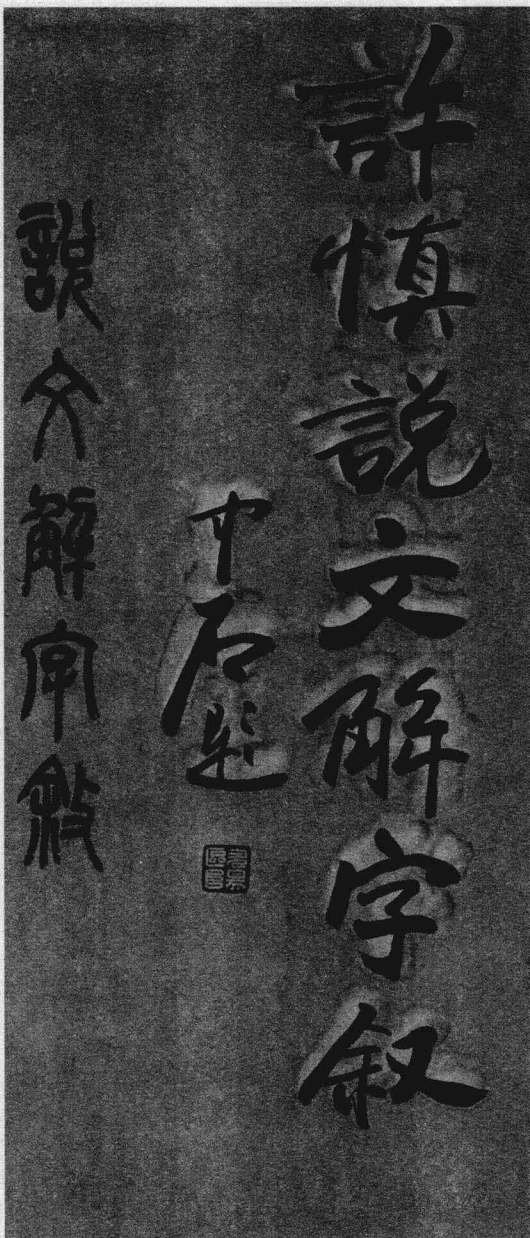 許慎説文解字叙
中石題
說文解字敘